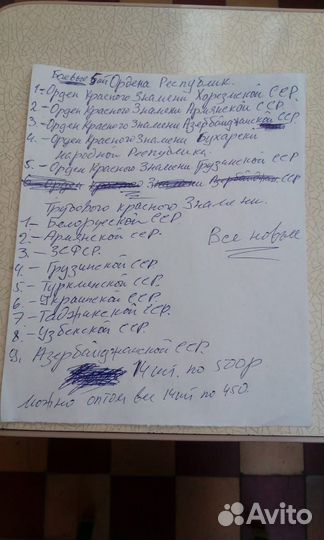 Боевые 5ой Ордена Республик.
1-Орден Красного Знамени Хорезмской ССР
2-Орден Красного Знамени Армянской ССР.
3-Орден Красного Знамени Азербайджанской ССР
4-Орден Красного Знамени Бухарски
народной Республики.
5. Орден Красного Знамени Грузинской ССР
6-Орден Красного Знамени Азербайджан ССР
Трудового красного Знамени.
1-Белорусской ССР
2-Армянской ССР.
3.-ЗСФСР.
4.-Грузинской ССР.
5-Туркменской ССР.
6.-Украинской ССР.
7-Таджикской ССР.
8.-Узбекской ССР.
9. Азербайджанской ССР.
Все новые
14шт. по 500р
Можно оптом все 14шт по 450.
Avito